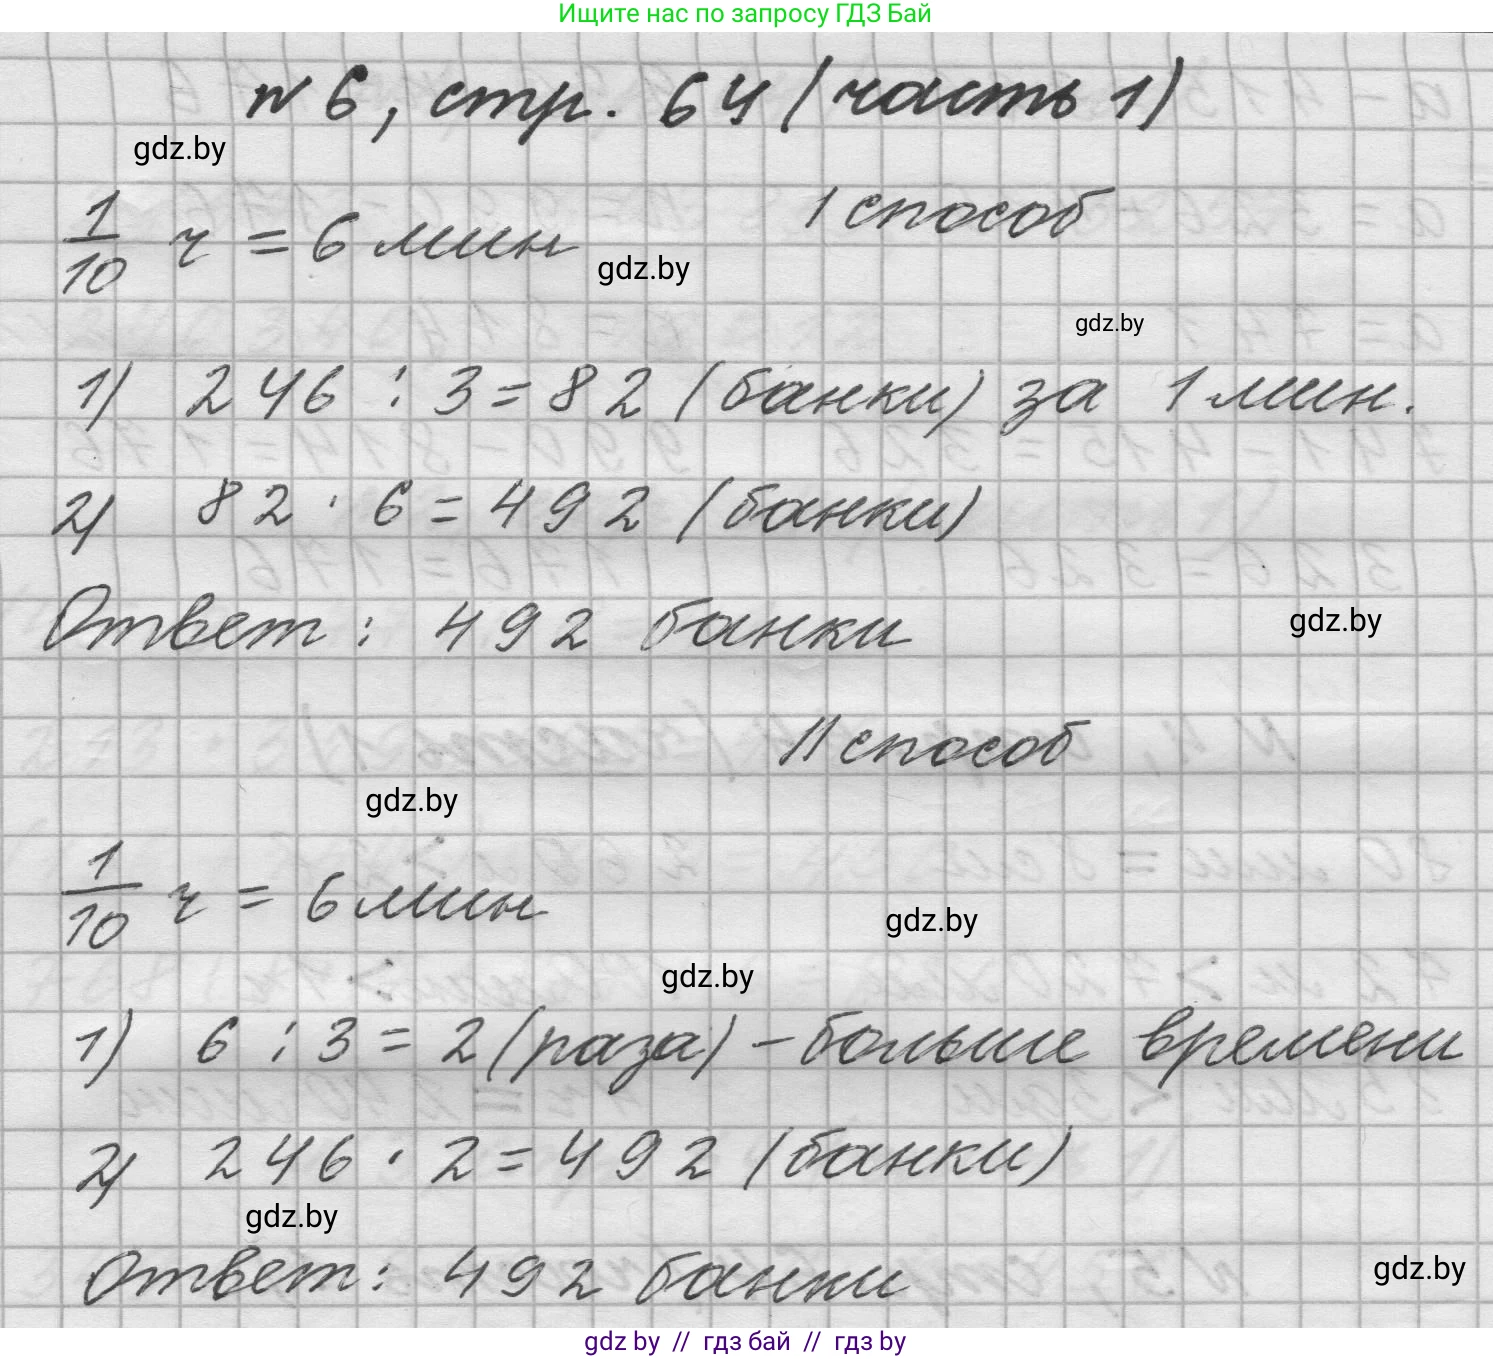 Ищите нас по запросу ГДЗ Бай
№ 6, стр. 64 (часть 1)
gdz.by
I способ
1/10 ч = 6 мин
gdz.by
gdz.by
1) 246 : 3 = 82 (банки) за 1 мин.
2) 82 · 6 = 492 (банки)
Ответ: 492 банки
gdz.by
II способ
gdz.by
1/10 ч = 6 мин
gdz.by
gdz.by
1) 6 : 3 = 2 (раза) – больше времени
2) 246 · 2 = 492 (банки)
gdz.by
Ответ: 492 банки
gdz.by
gdz by // гдз бай // гдз by